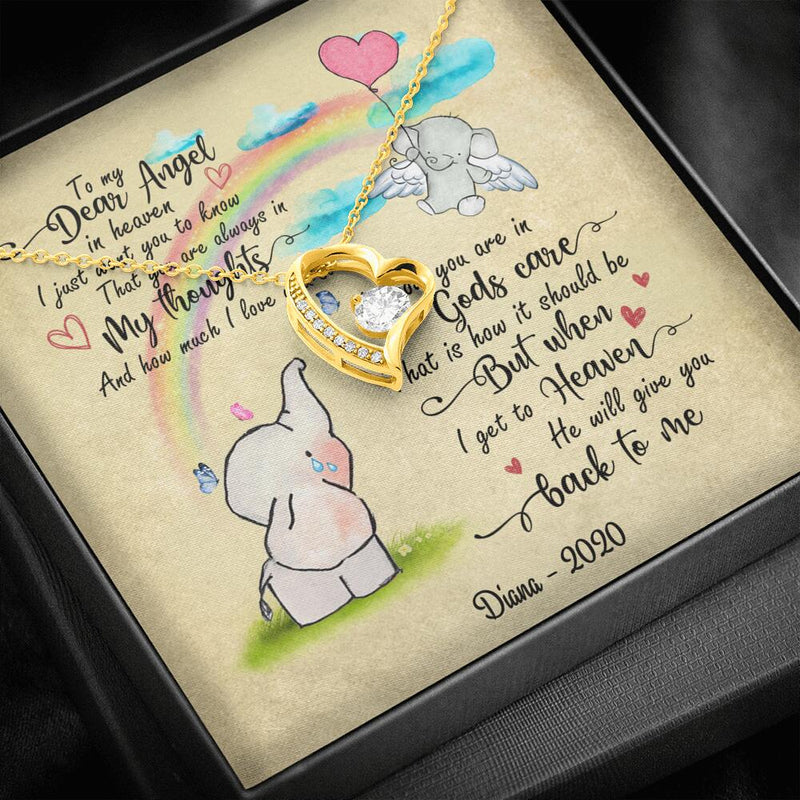 To my
Dear Angel
in heaven
I just want you to know
That you are always in
My thoughts
And how much I love
you are in
Gods care
that is how it should be
But when
I get to Heaven
He will give you
back to me
Diana - 2020